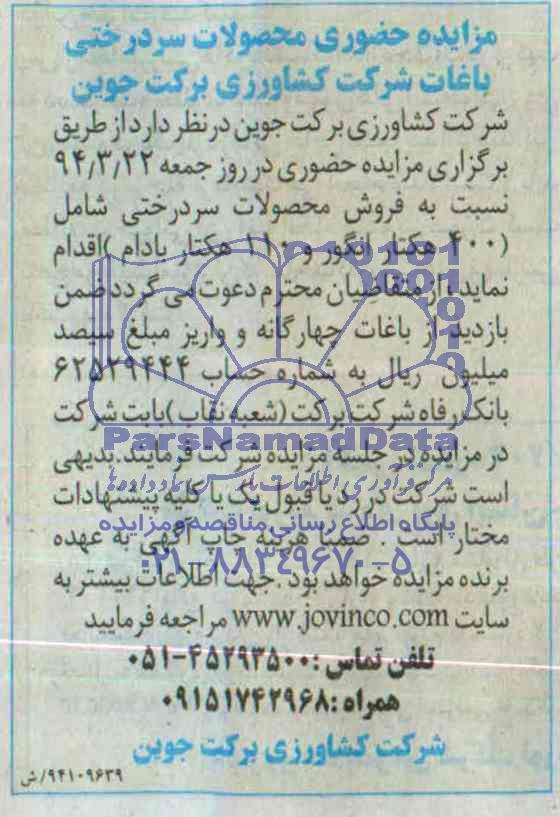 مزایده حضوری محصولات سردرختی
باغات شرکت کشاورزی برکت جوین
شرکت کشاورزی برکت جوین درنظر دارد از طریق
برگزاری مزایده حضوری در روز جمعه ۹۴/۳/۲۲
نسبت به فروش محصولات سردرختی شامل
(۴۰۰ هکتار انگور و ۱۱۰ هکتار بادام )اقدام
نماید ، از متقاضیان محترم دعوت می گردد ضمن
بازدید از باغات چهارگانه و واریز مبلغ سیصد
میلیون ریال به شماره حساب ۶۲۵۲۹۴۴۴
بانک رفاه شرکت برکت (شعبه نقاب )بابت شرکت
ParsNamadData
در مزایده در جلسه مزایده شرکت فرمایند.بدیهی
مرکز فرآوری اطلاعات پارس نماد داده ها
است شرکت در رد یا قبول یک یا کلیه پیشنهادات
پایگاه اطلاع رسانی مناقصه و مزایده
مختار است . ضمنا هزینه چاپ آگهی به عهده
۰۲۱-۸۸۳۴۹۶۷۰-۵
برنده مزایده خواهد بود .جهت اطلاعات بیشتر به
سایت www.jovinco.com مراجعه فرمایید
تلفن تماس :۴۵۲۹۳۵۰۰-۰۵۱
همراه :۰۹۱۵۱۷۴۲۹۶۸
شرکت کشاورزی برکت جوین
۹۴۱۰۹۶۳۹/ش